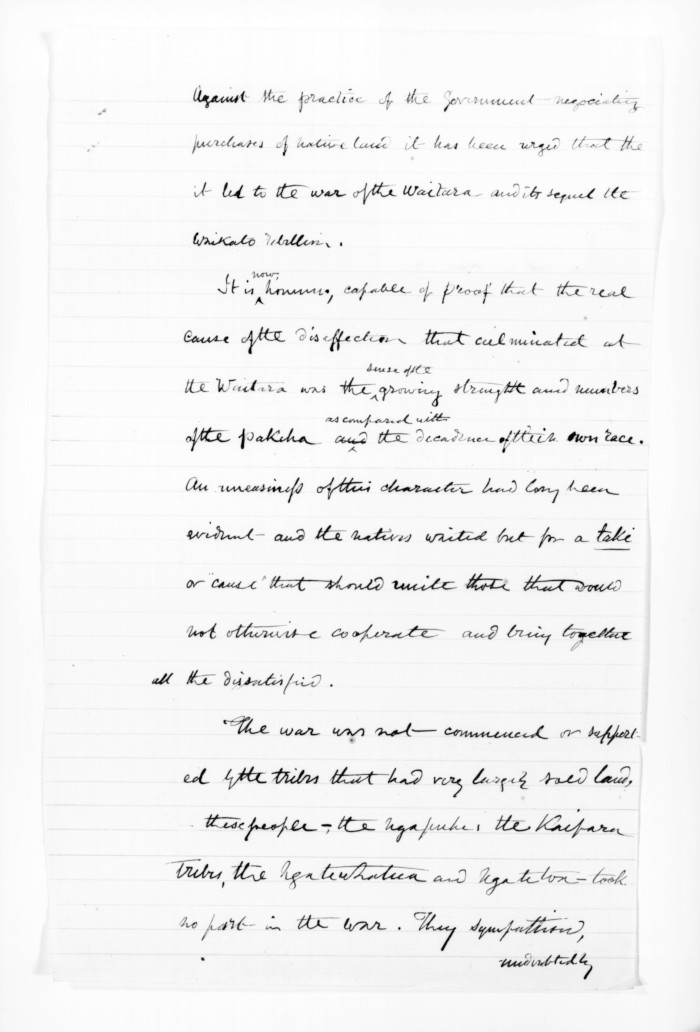 Against the practice of the Government negociating
purchases of native land it has been urged that the
it led to the war of the Waitara and its sequel the
Waikato rebellion.
It is now, however, capable of proof that the real
cause of the disaffection that culminated at
the Waitara was the sense of the growing strength and numbers
of the pakeha and as compared with the decadence of their own race.
An uneasiness of this character had long been
evident and the natives waited but for a take
or "cause" that should unite those that would
not otherwise cooperate and bring together
all the dissatisfied.
The war was not commenced or support-
ed by the tribes that had very largely sold land,
these people - the Ngapuhi, the Kaipara
tribes, the Ngatewhatua and Ngate - took
no part in the war. They sympathised,
undoubtedly